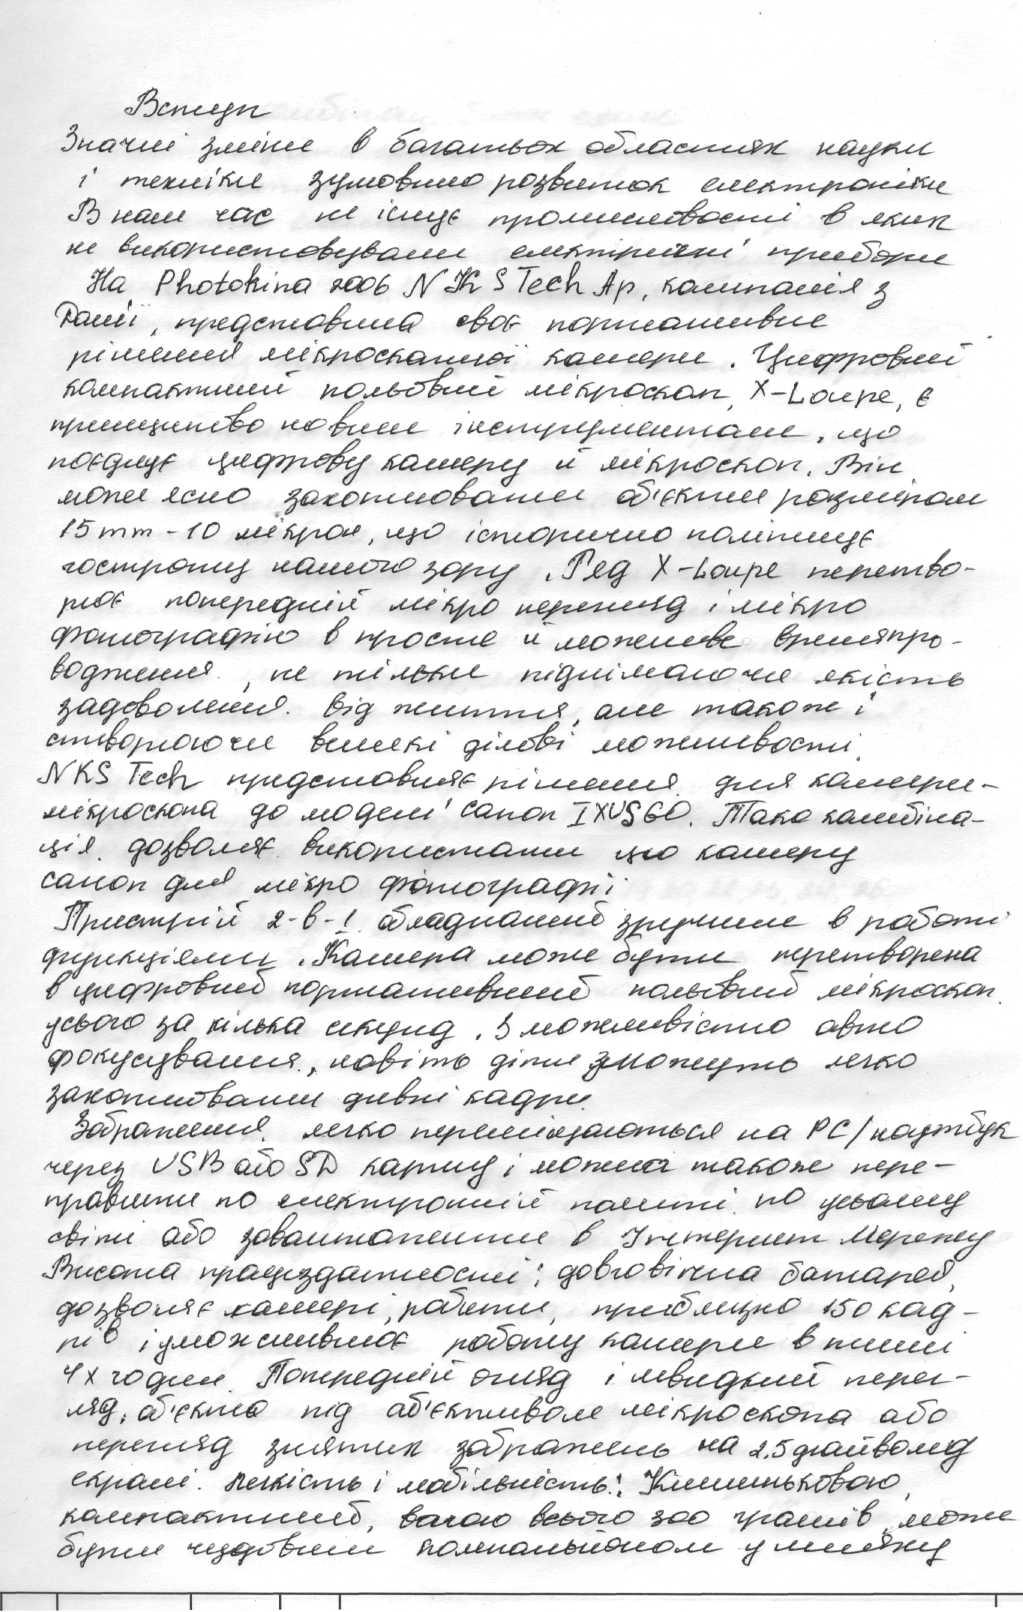 Вступ
Значні зміни в багатьох областях науки
і техніки зумовило розвиток електроніки
В наш час не існує промисловості в яких
не використовували електричні прибори
На Photokina 2006 NKSTech Ap, компанія з
Данії, представила своє портативне
рішення мікроскопної камери. Цифровий
компактний польовий мікроскоп, X-Loupe, є
принципово новим інструментом, що
поєднує цифрову камеру й мікроскоп. Він
може ясно захоплювати об'єкти розміром
15mm-10 мікрон, що історично поліпшує
гостроту нашого зору. Ряд X-Loupe перетво-
рює попередній мікро перегляд і мікро
фотографію в просте й можливе времяпро-
водження, не тільки піднімаючи якість
задоволення від життя, але також і
створюючи великі ділові можливості.
NKS Tech представляє рішення для камери-
мікроскопа до моделі Canon IXUS60. Така комбіна-
ція дозволяє використати цю камеру
canon для мікро фотографії
Пристрій 2-в-1 обладнаний зручним в роботі
функціями. Камера може бути перетворена
в цифровий портативний польовий мікроскоп
усього за кілька секунд. З можливістю авто
фокусування, навіть діти зможуть легко
захоплювати дивні кадри.
Зображення легко переміщаються на PC/ноутбук
через USB або SD карту і можна також пере-
правити по електронній пошті по усьому
світі або завантажити в Інтернет Мережу
Висока працездатності: довговічна батарея,
дозволяє камері, робити, приблизно 150 кад-
рів і уможливлює роботу камери в плині
4х годин. Попередній огляд і швидкий перег-
ляд, об'єкта під об'єктивом мікроскопа або
перегляд знятих зображень на 2,5 дюймовод
екрані. Легкість і мобільність: Кишенькового,
компактний, вагою всього 300 грамів, може
бути чудовим компаньйоном у